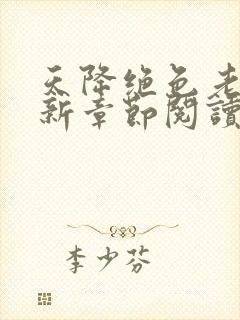 天降绝色老
新章節閱讀
李少芬